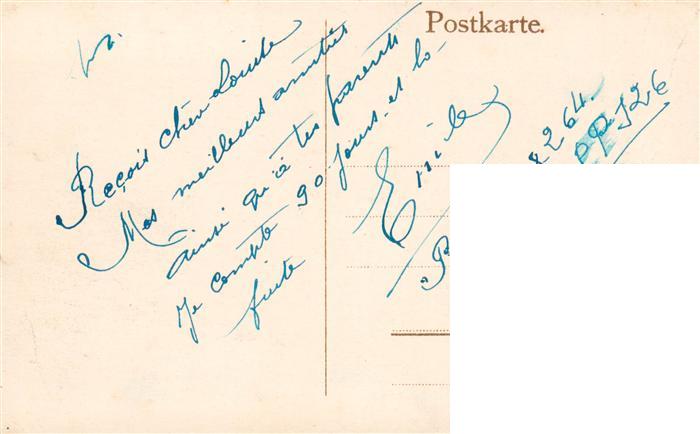 Postkarte.
Reçois chère Louise
Mes meilleurs amitiés
ainsi qu'à tes parents
Je compte 90 jours et la
fuite
Emile